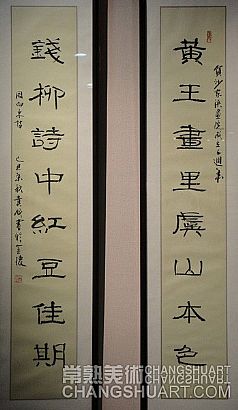 賀沙家浜畫院成立二週年
黃王畫里虞山本色
錢柳詩中紅豆佳期
己丑
常熟美術 CHANGSHUART
CHANGSHUART.COM